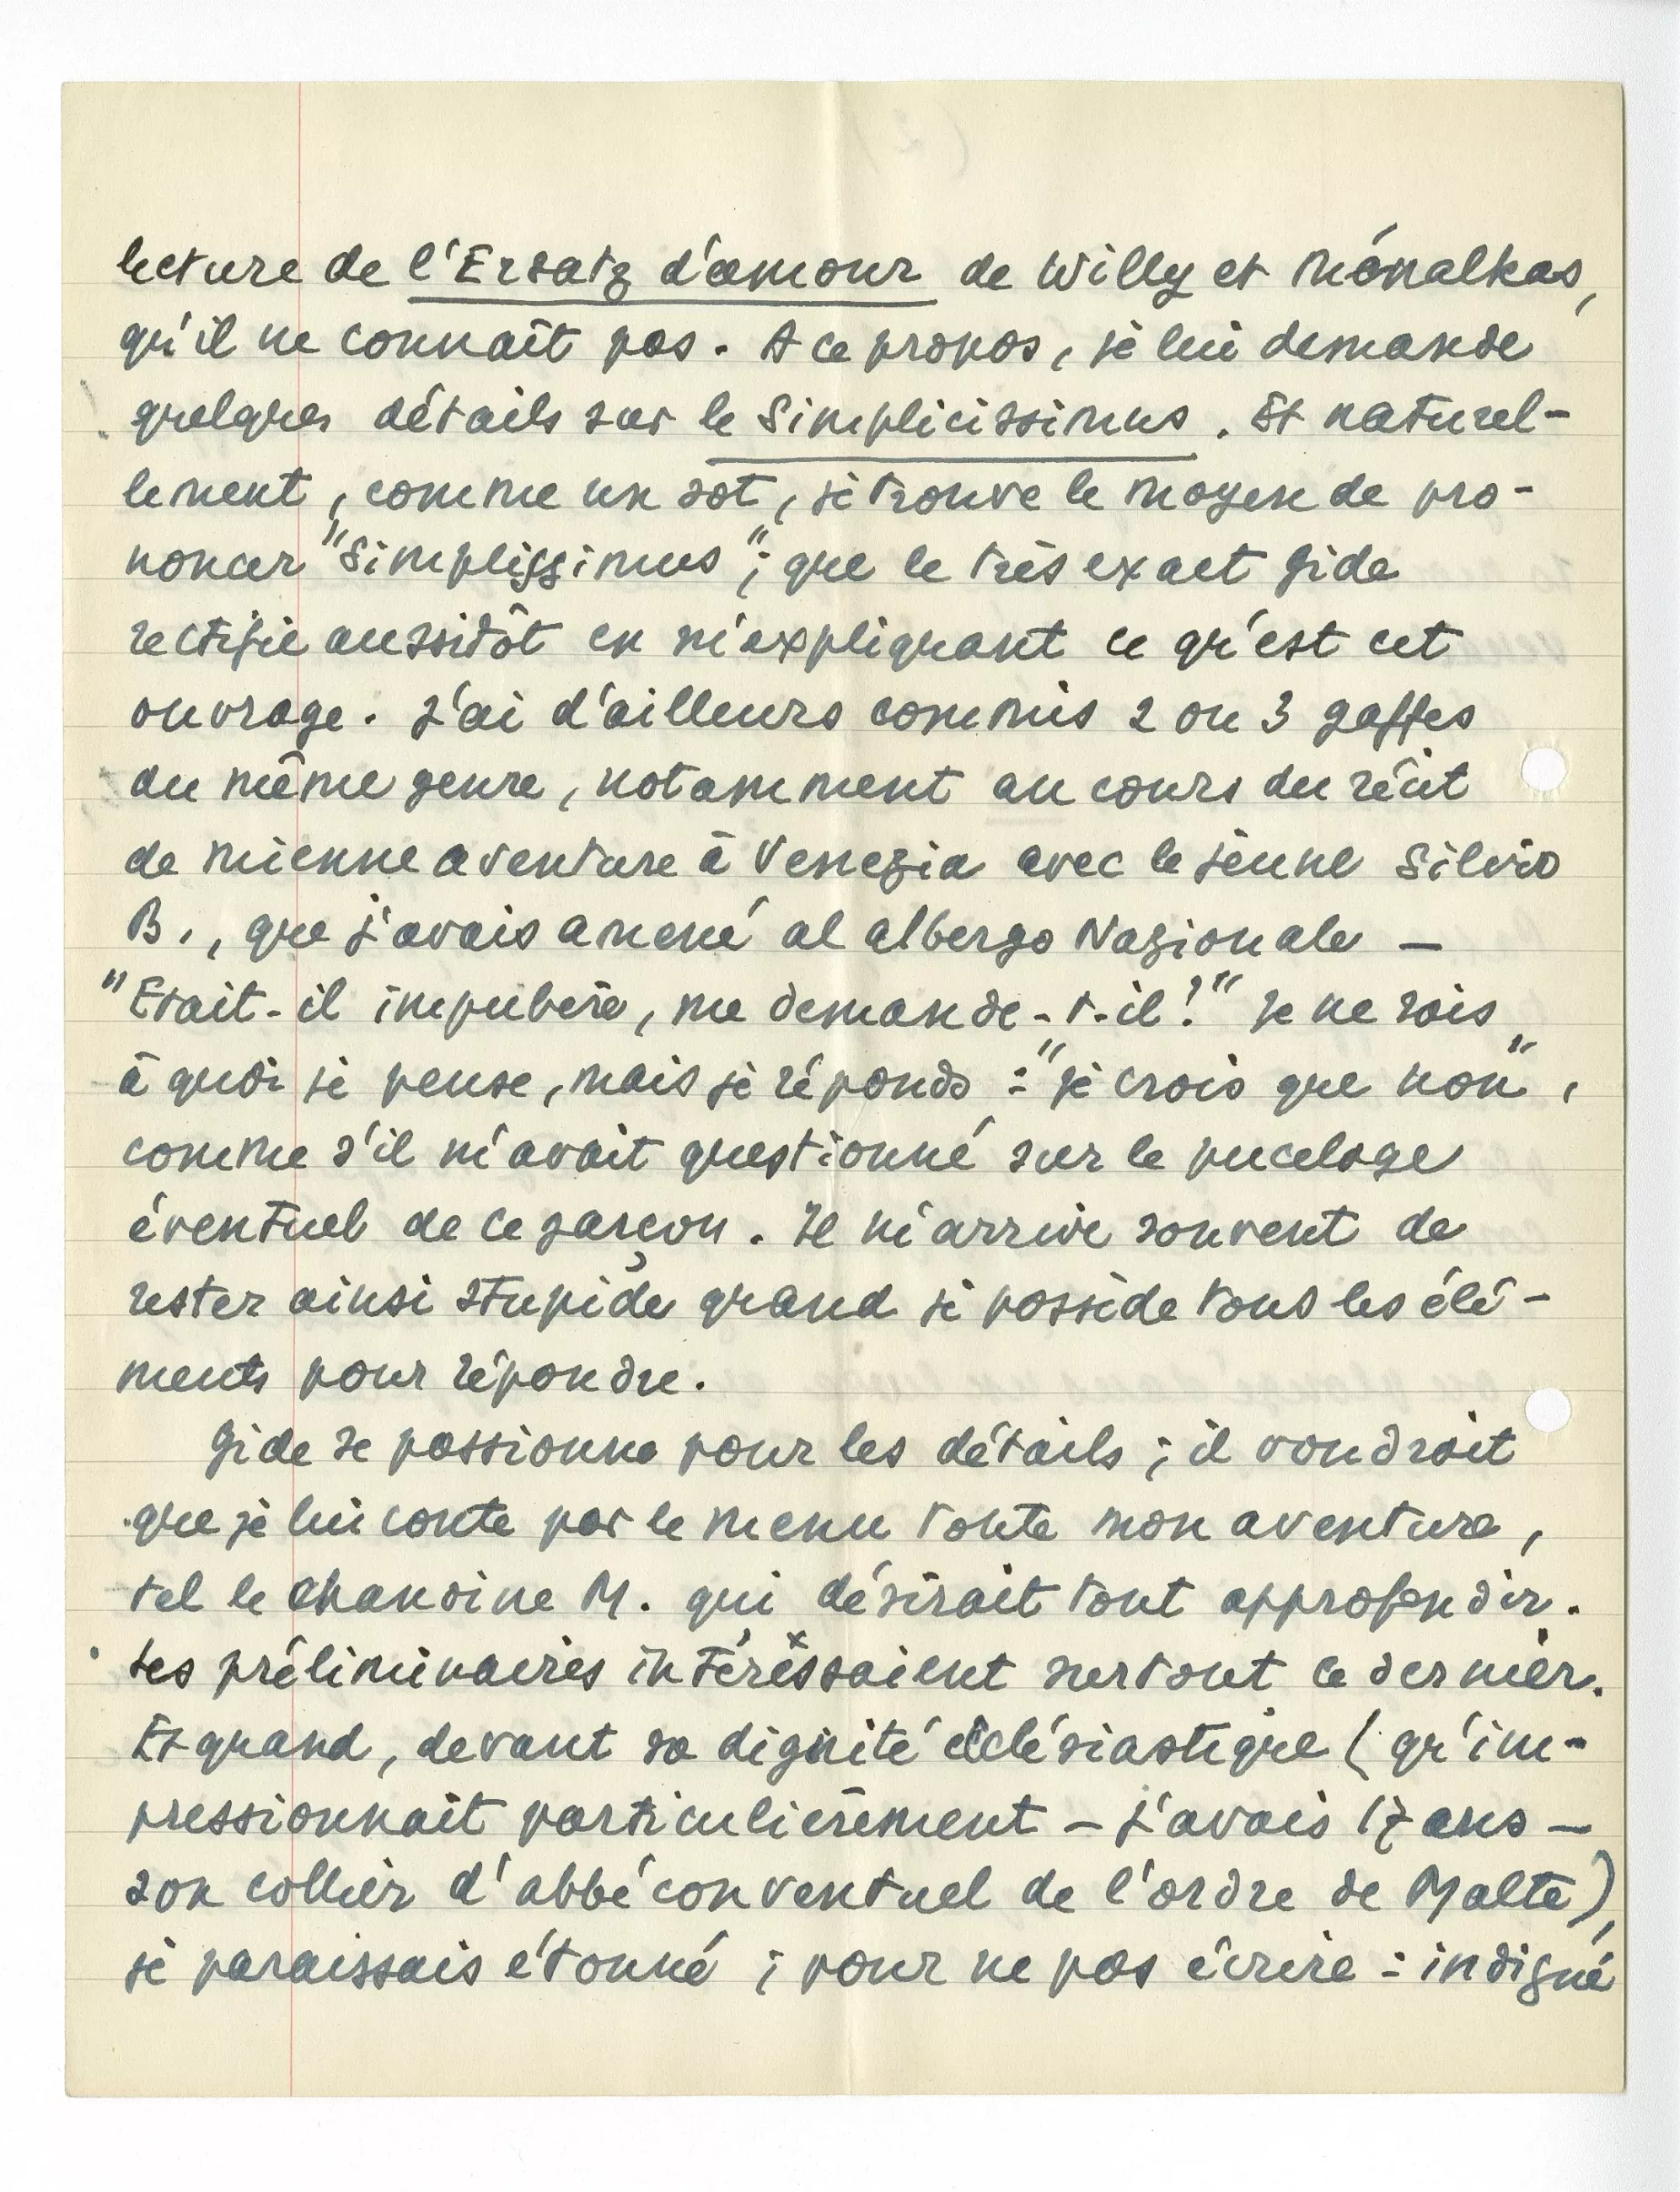 lecture de l'Ersatz d'amour de Willy et Ménalkas,
qu'il ne connaît pas. A ce propos, je lui demande
quelques détails sur le Simplicissimus. Et naturel-
lement, comme un sot, je trouve le moyen de pro-
noncer "Simplissimus"; que le très exact Gide
rectifie aussitôt en m'expliquant ce qu'est cet
ouvrage. J'ai d'ailleurs commis 2 ou 3 gaffes
du même genre, notamment au cours du récit
de mienne aventure à Venezia avec le jeune Silvio
B., que j'avais amené al albergo Nazionale —
"Etait-il impubère, me demande-t-il?" Je ne sais
à quoi je pense, mais je réponds : "je crois que non",
comme s'il m'avait questionné sur le pucelage
éventuel de ce garçon. Il m'arrive souvent de
rester ainsi stupide quand je possède tous les élé-
ments pour répondre.
Gide se passionne pour les détails ; il voudrait
que je lui conte par le menu toute mon aventure,
tel le chanoine M. qui désirait tout approfondir.
Les préliminaires intéressaient surtout ce dernier.
Et quand, devant sa dignité ecclésiastique (qu'im-
pressionnait particulièrement — j'avais 17 ans —
son collier d'abbé conventuel de l'ordre de Malte),
je paraissais étonné ; pour ne pas écrire : indigné